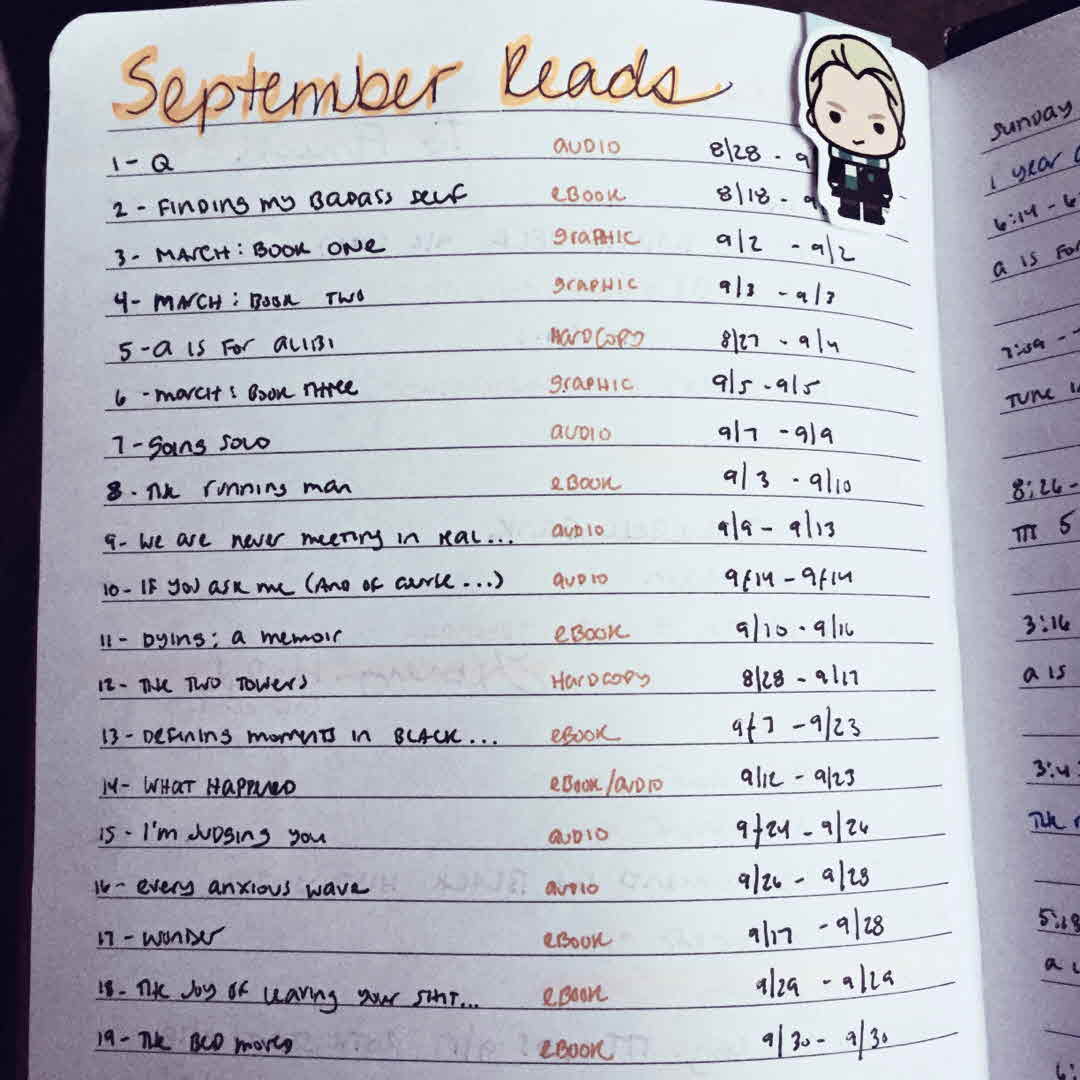 September Reads
1 - Q AUDIO 8/28 - 9
2 - Finding my Badass Self eBook 8/18 - 9
3 - March: Book One graphic 9/2 - 9/2
4 - March: Book Two graphic 9/3 - 9/3
5 - A is for Alibi Hardcopy 8/27 - 9/4
6 - March: Book Three graphic 9/5 - 9/5
7 - Going Solo audio 9/7 - 9/9
8 - The Running Man eBook 9/3 - 9/10
9 - We are never meeting in real... audio 9/9 - 9/13
10 - If you ask me (And of course...) audio 9/14 - 9/14
11 - Dying: a memoir eBook 9/10 - 9/16
12 - The Two Towers Hardcopy 8/28 - 9/17
13 - Defining moments in BLACK... eBook 9/7 - 9/23
14 - What Happened eBook/audio 9/12 - 9/23
15 - I'm Judging you audio 9/24 - 9/26
16 - every anxious wave audio 9/26 - 9/28
17 - Wonder eBook 9/17 - 9/28
18 - The Joy of leaving your shit... eBook 9/29 - 9/29
19 - The Bed moved eBook 9/30 - 9/30
Sunday
1 year
6:14 - 6
a is for
7:09 -
Tune
8:26 -
5
3:16
a is
3:4
The
5:18
a
6: